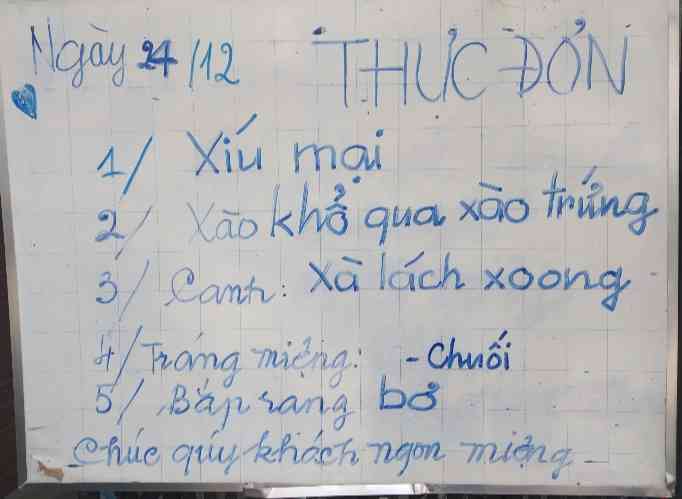 Ngày 24/12 THỰC ĐƠN
1/ Xíu mại
2/ Xào khổ qua xào trứng
3/ Canh: Xà lách xoong
4/ Tráng miệng: - Chuối
5/ Bắp rang bơ
- Chúc quý khách ngon miệng -